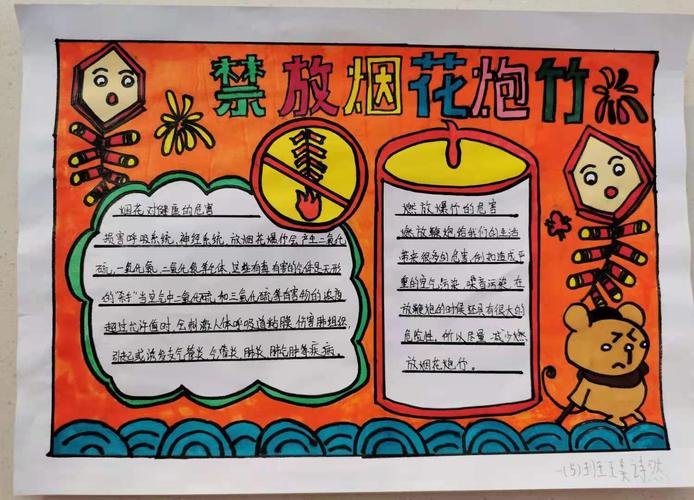 禁放烟花炮竹
烟花对健康的危害
损害呼吸系统,神经系统,放烟花爆竹会产生二氧化
硫,一氧化氮,二氧化氮等气体,这些有毒有害的气体是无形
的"杀手"当空气中二氧化硫,和三氧化硫等有害物的浓度
超过允许值时,会刺激人体呼吸道粘膜,伤害肺组织,
引起或诱发支气管炎,气管炎,肺炎,肺气肿等疾病。
燃放爆竹的危害
燃放鞭炮给我们的生活
带来很多的危害,例如造成严
重的空气污染,噪音污染,在
放鞭炮的时候还具有很大的
危险性,所以尽量,减少燃
放烟花炮竹。
一(5)班 诗然